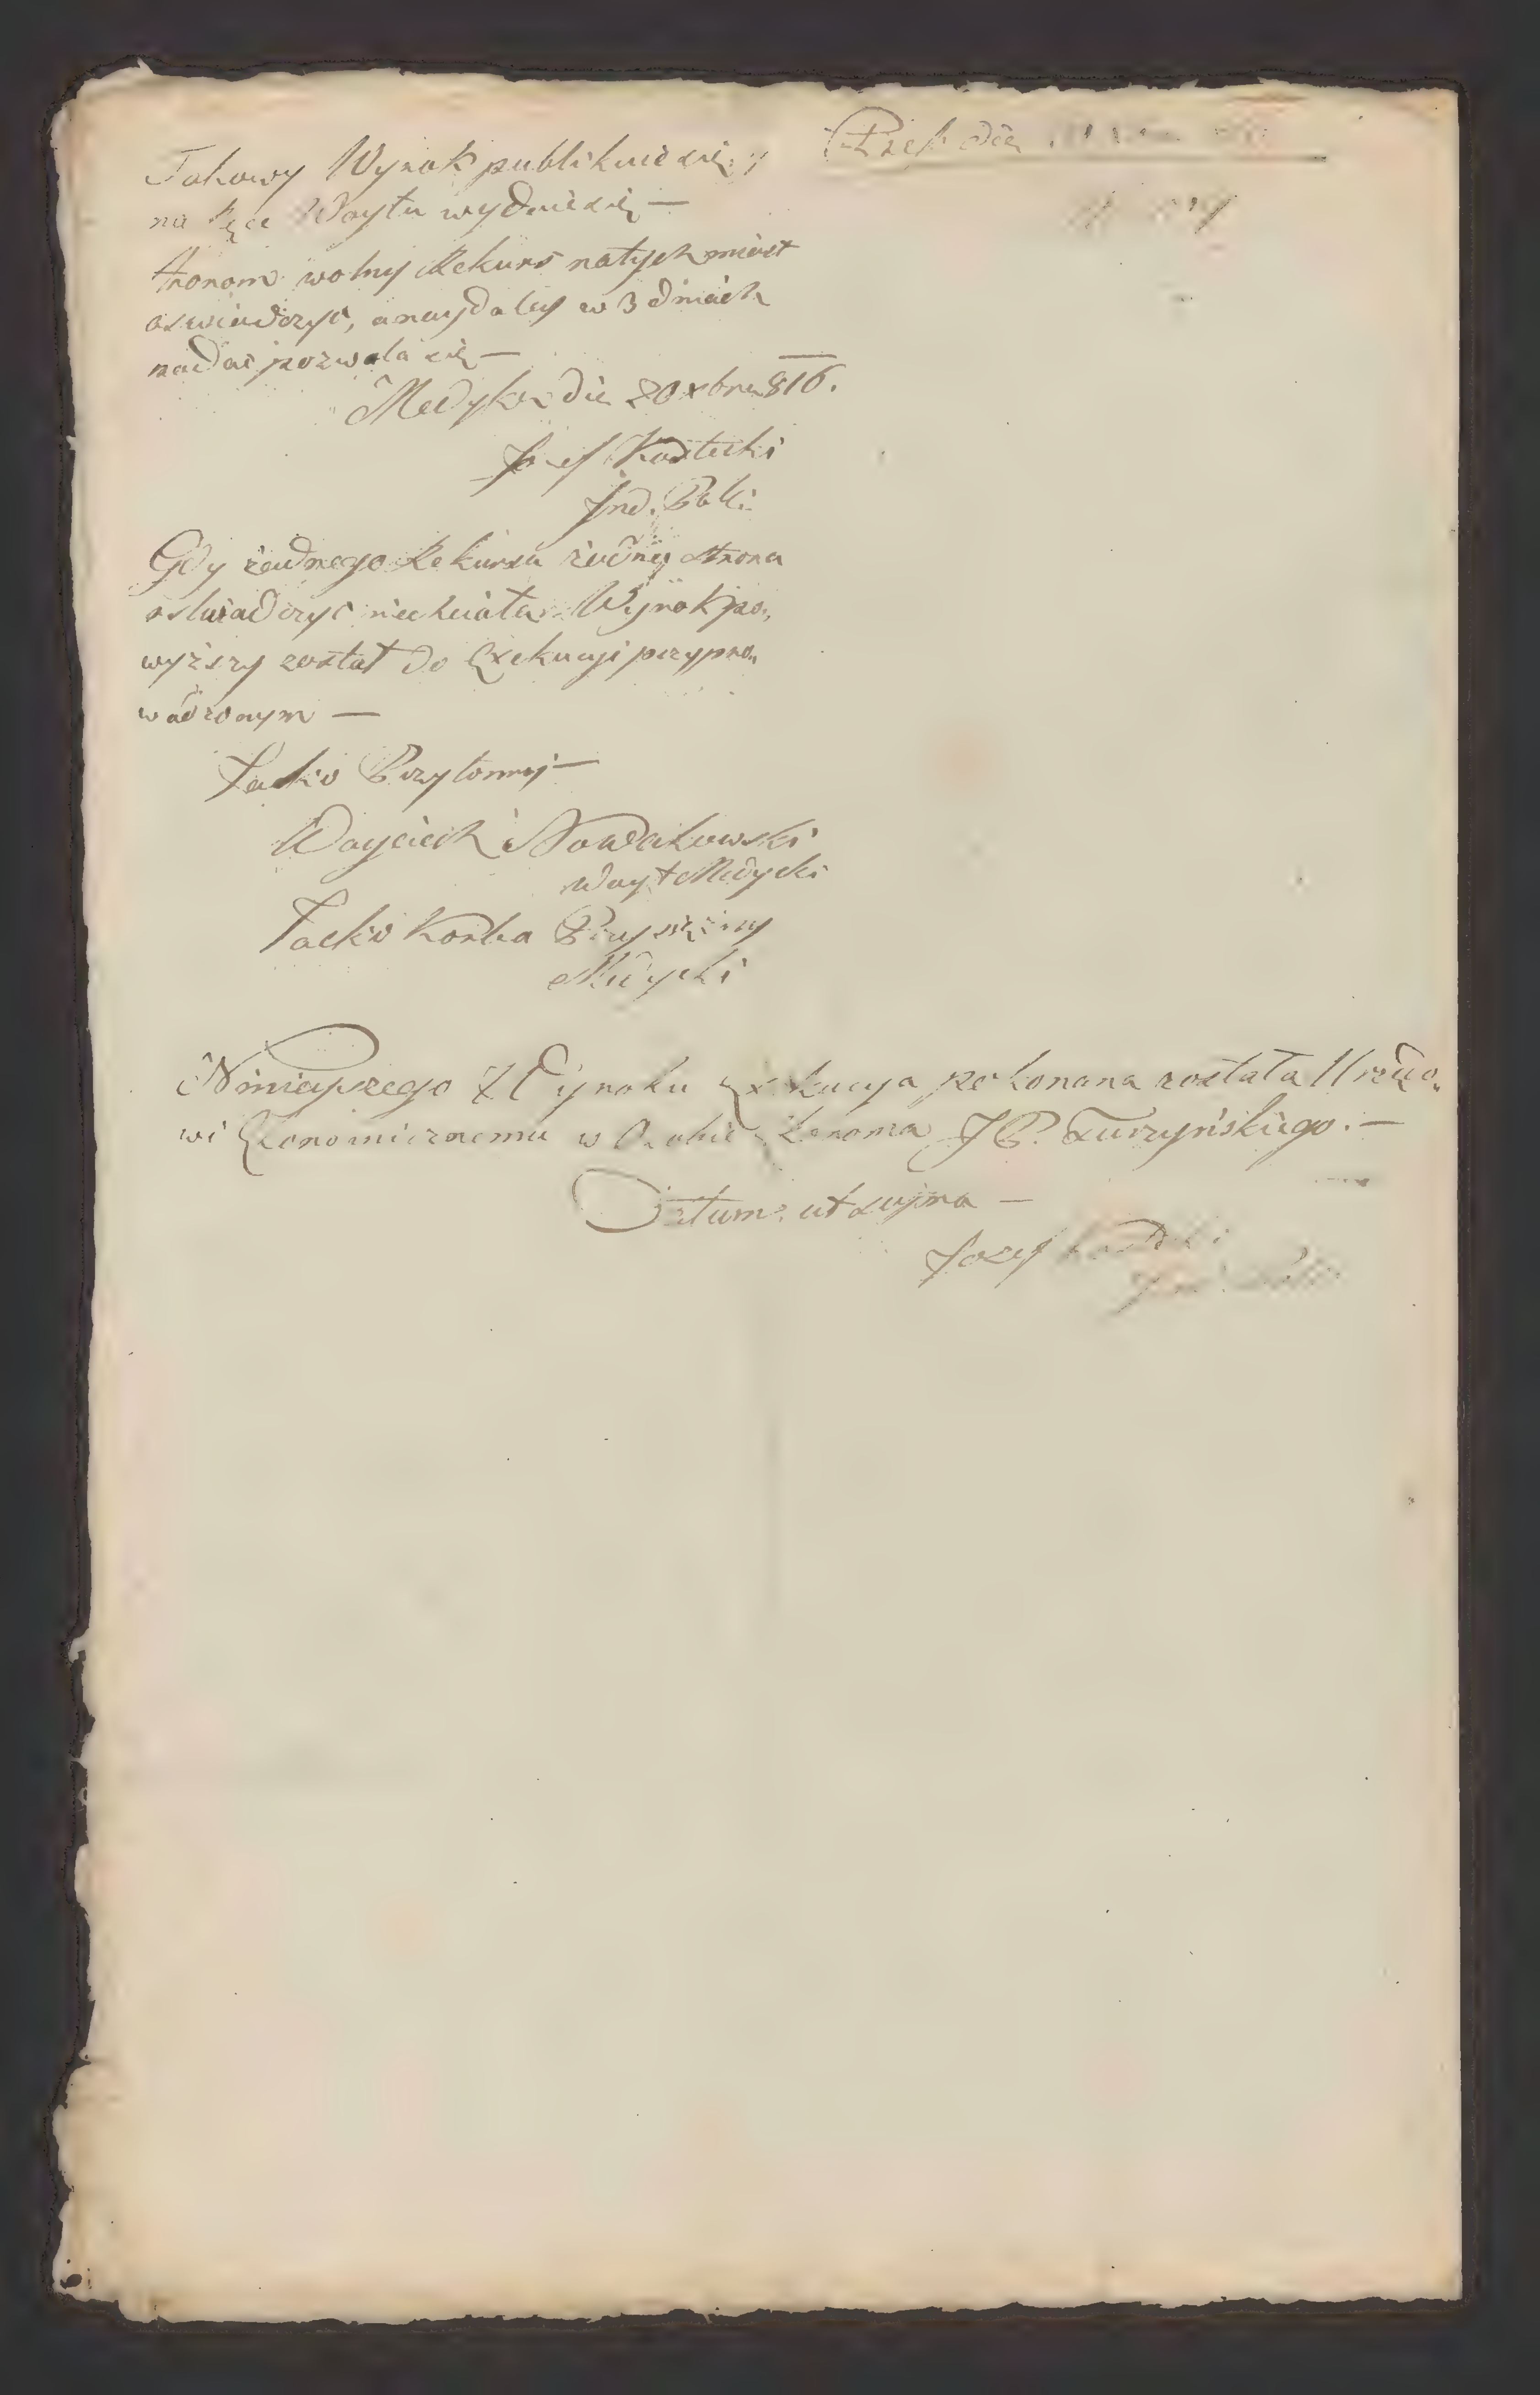 Takowy Wyrok publikuie się, y
na Ręce Woyta wydaie się —
Stronom wolny Rekurs natychmiast
oswiadczyć, a naydaley w 3 dniach
podać pozwala się —
Medyka die 20 xbra 816.
Jozef Kostecki
Jnd. Polit.
Gdy żadnego Rekursu żadna strona
oswiadczyć niechciała Wyrok po„
wyższy został do Exekucyi przypro„
wadzonym —
Jacko Przytomny —
Woyciech Nowakowski
Woyt Medycki
Jacko Korba Przysiężny
Medycki
Ninieyszego Wyroku Exekucya po konana została Urzędo„
wi Ekonomicznemu w Osobie Ekonoma J P. Turzyńskiego. —
Datum ut supra —
Jozef Kostecki
Jnd. Polit.
die